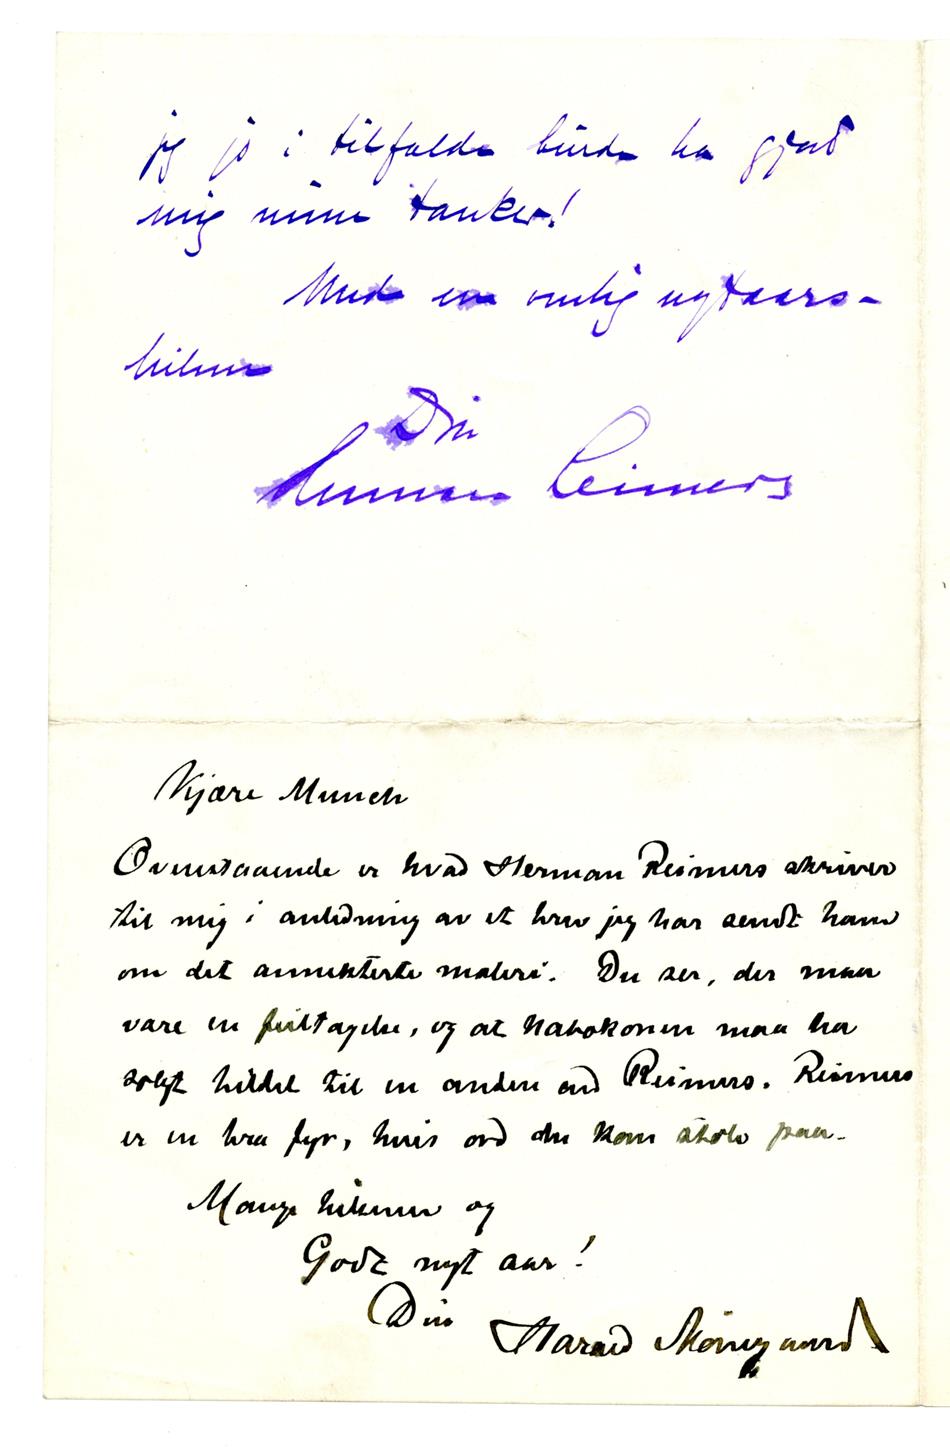 jeg jo i tilfælde burde ha gjort
mig mine tanker!
Med en venlig nytaars-
hilsen
Din
Herman Reimers
Kjære Munch
Ovenstaaende er hvad Herman Reimers skriver
til mig i anledning av et brev jeg har sendt ham
om det annekterte maleri. Du ser, der maa
være en feiltagelse, og at nabokonen maa ha
solgt billedet til en anden end Reimers. Reimers
er en bra fyr, hvis ord du kan stole paa.
Mange hilsener og
Godt nyt aar!
Din
Harald Nørregaard